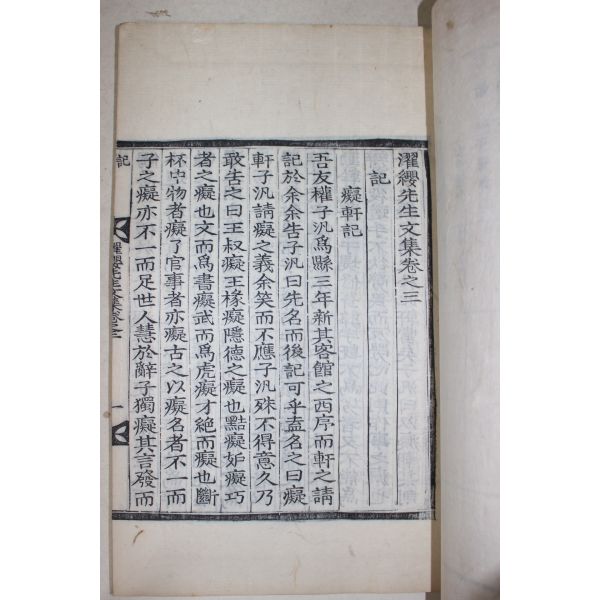 濯纓先生文集卷之三
記
癡軒記
吾友權子汎爲縣三年新其客館之西序而軒之請
記於余余告子汎曰先名而後記可乎盍名之曰癡
軒子汎請癡之義余笑而不應子汎殊不得意久乃
敢告之曰王叔癡王椽癡隱德之癡也黠癡妒癡巧
者之癡也文而爲書癡武而爲虎癡才絶而癡也斷
杯中物者癡了官事者亦癡古之以癡名者不一而
子之癡亦不一而足世人慧於辭子獨癡其言發而
記
濯纓先生文集卷之三
一